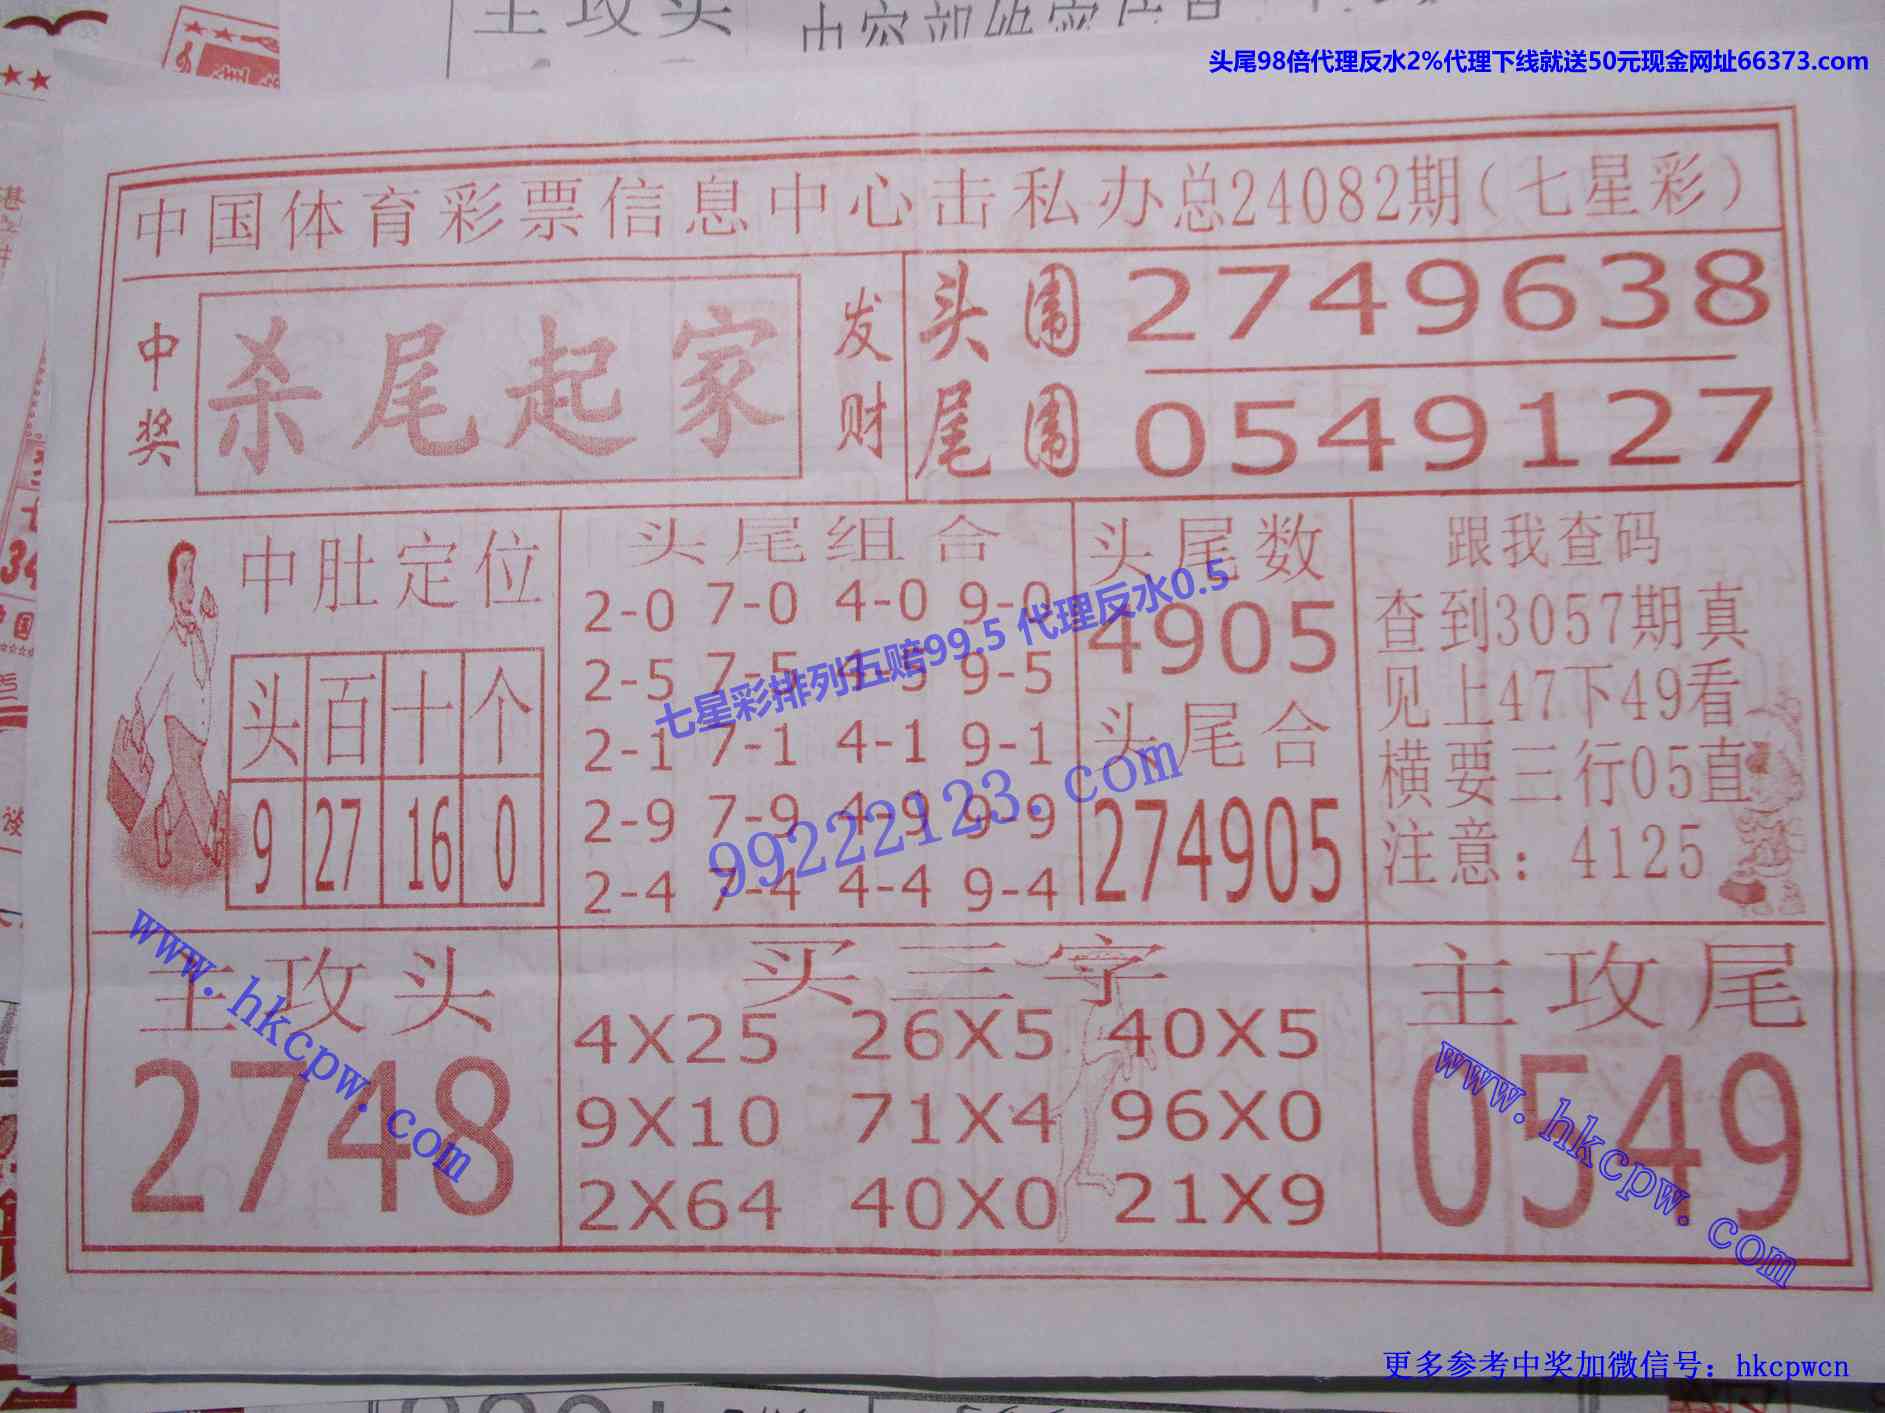 主攻头
头尾98倍代理反水2%代理下线就送50元现金网址66373.com
中国体育彩票信息中心击私办总24082期(七星彩)
中奖
杀尾起家
发财
头围 2749638
尾围 0549127
中肚定位
头 百 十 个
9 27 16 0
头尾组合
2-0 7-0 4-0 9-0
2-5 7-5 4-5 9-5
2-1 7-1 4-1 9-1
2-9 7-9 4-9 9-9
2-4 7-4 4-4 9-4
头尾数
4905
头尾合
274905
跟我查码
查到3057期真
见上47下49看
横要三行05直
注意：4125
七星彩排列五赔99.5 代理反水0.5
99222123.com
主攻头
2748
www.hkcpw.com
买三字
4X25 26X5 40X5
9X10 71X4 96X0
2X64 40X0 21X9
主攻尾
0549
www.hkcpw.com
更多参考中奖加微信号：hkcpwcn